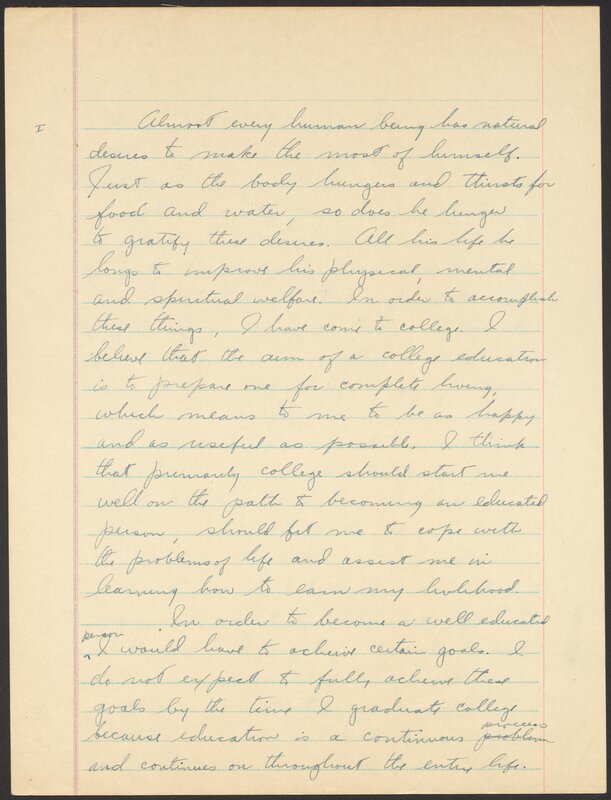 I
Almost every human being has natural
desires to make the most of himself.
Just as the body hungers and thirsts for
food and water, so does he hunger
to gratify these desires. All his life he
longs to improve his physical, mental
and spiritual welfare. In order to accomplish
these things, I have come to college. I
believe that the aim of a college education
is to prepare one for complete living,
which means to me to be as happy
and as useful as possible. I think
that primarily college should start me
well on the path to becoming an educated
person, should fit me to cope with
the problems of life and assist me in
learning how to earn my livlihood.
In order to become a well educated
person
^ I would have to acheive certain goals. I
do not expect to fully acheive these
goals by the time I graduate college
process
because education is a continuous problem
and continues on throughout the entire life.